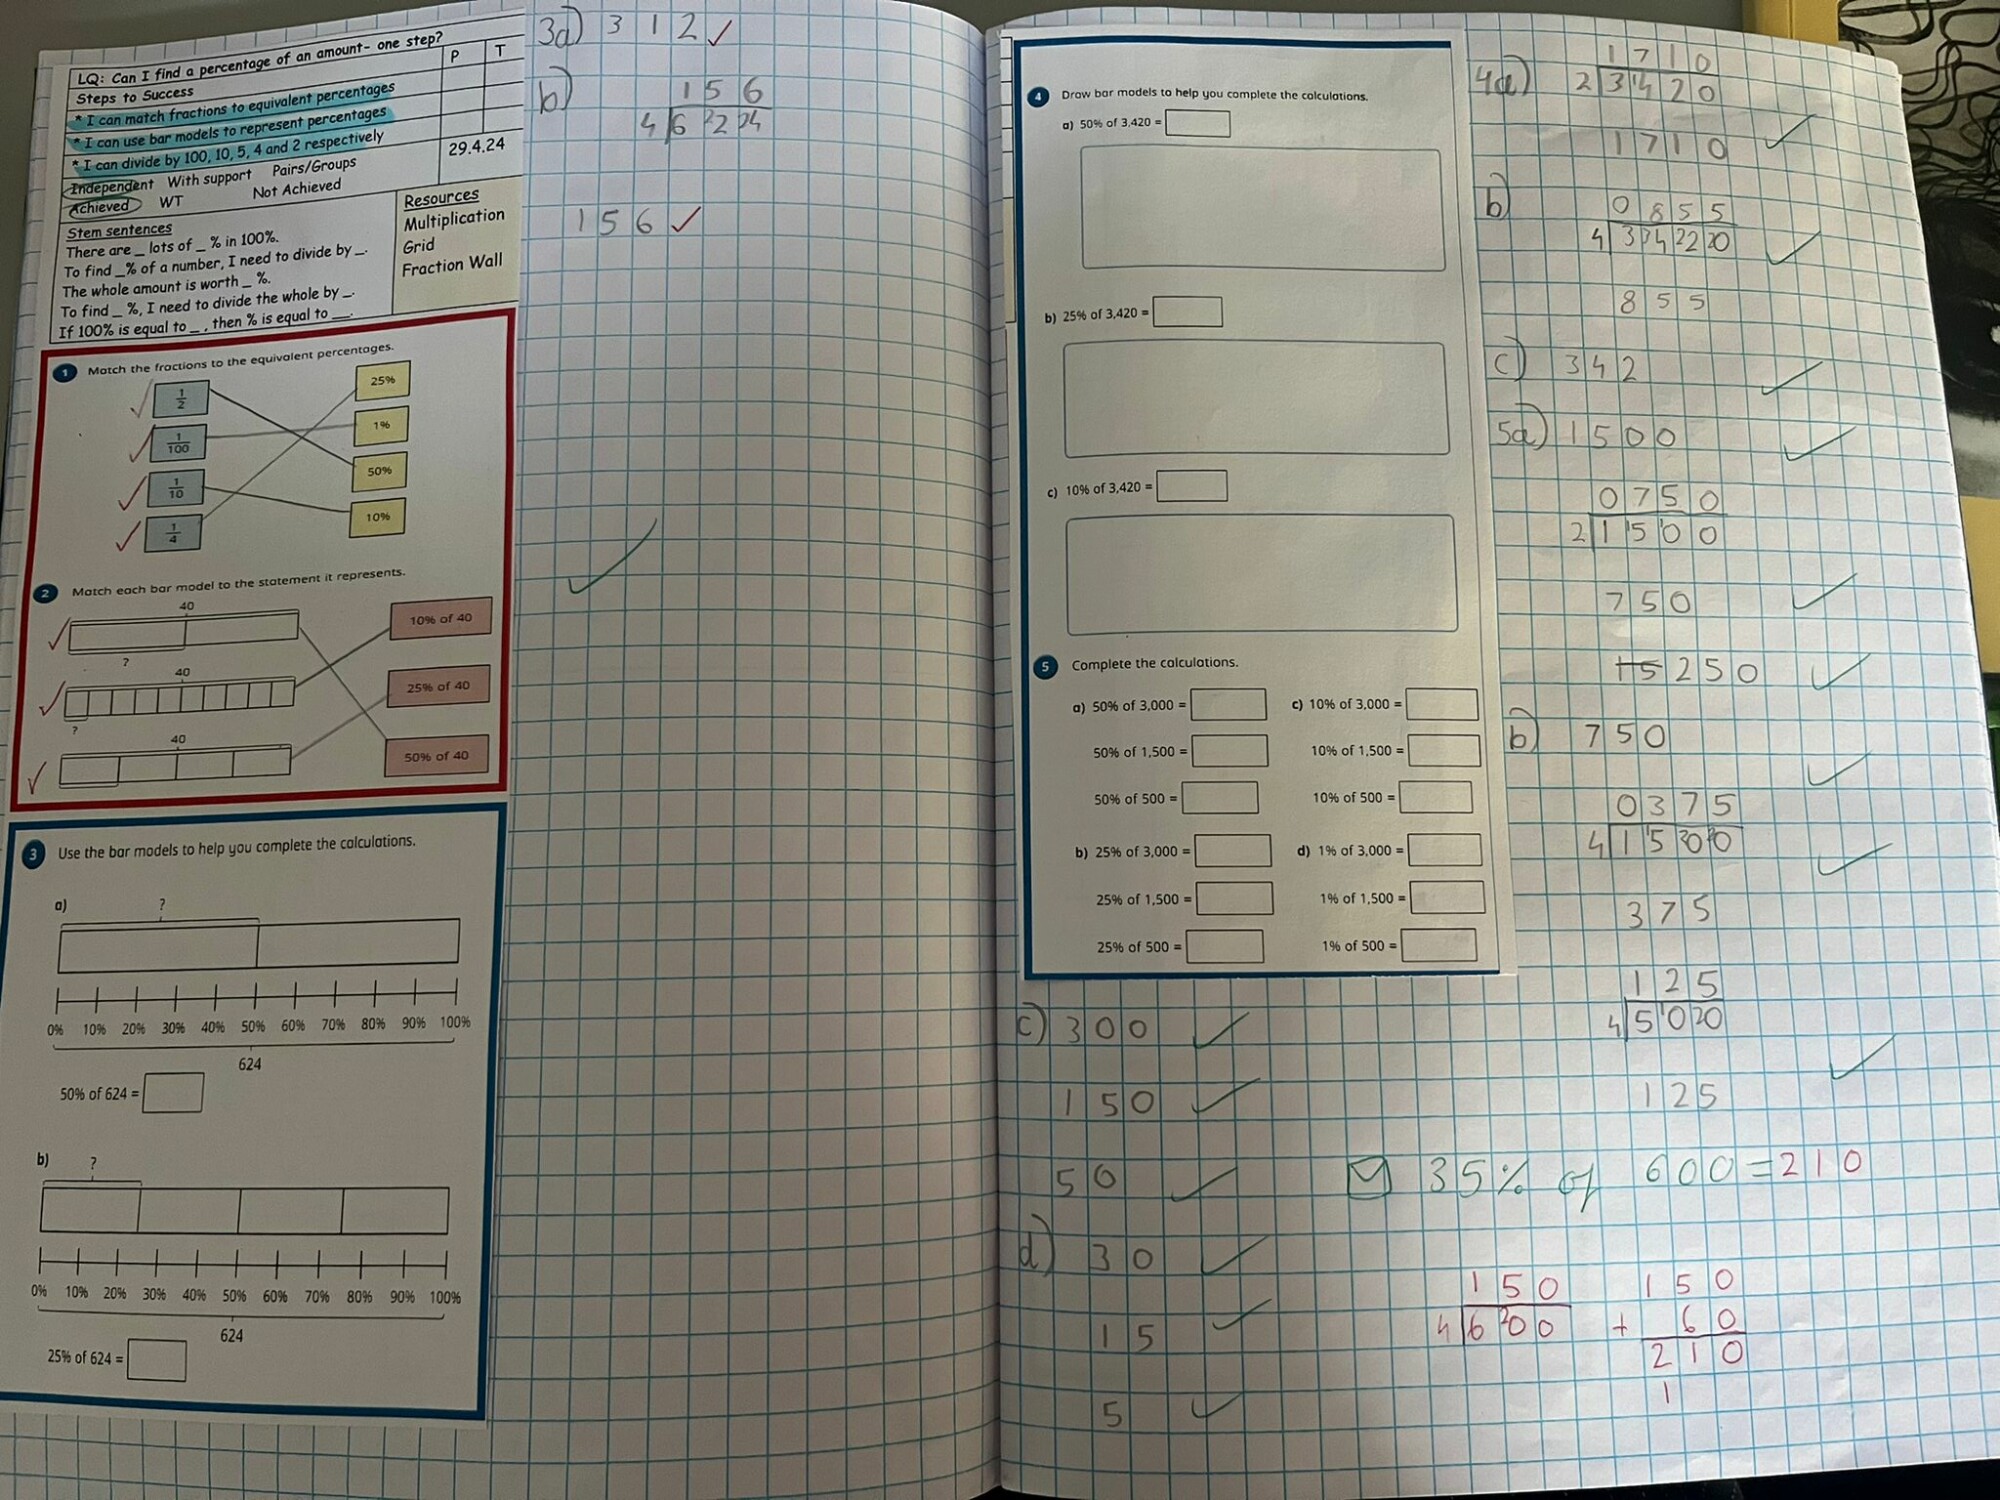 LQ: Can I find a percentage of an amount- one step?
P
T
Steps to Success
* I can match fractions to equivalent percentages
* I can use bar models to represent percentages
* I can divide by 100, 10, 5, 4 and 2 respectively
29.4.24
Independent With support Pairs/Groups
Achieved WT Not Achieved
Stem sentences
There are _ lots of _ % in 100%.
To find _% of a number, I need to divide by _.
The whole amount is worth _ %.
To find _ %, I need to divide the whole by _.
If 100% is equal to _ , then % is equal to __.
Resources
Multiplication
Grid
Fraction Wall
1 Match the fractions to the equivalent percentages.
1/2 25%
1/100 1%
1/10 50%
1/4 10%
2 Match each bar model to the statement it represents.
40
?
10% of 40
40
?
25% of 40
40
50% of 40
3 Use the bar models to help you complete the calculations.
a) ?
0% 10% 20% 30% 40% 50% 60% 70% 80% 90% 100%
624
50% of 624 =
b) ?
0% 10% 20% 30% 40% 50% 60% 70% 80% 90% 100%
624
25% of 624 =
3a) 312
b) 156
4 6 22 24
156
4 Draw bar models to help you complete the calculations.
a) 50% of 3,420 =
b) 25% of 3,420 =
c) 10% of 3,420 =
5 Complete the calculations.
a) 50% of 3,000 =
50% of 1,500 =
50% of 500 =
b) 25% of 3,000 =
25% of 1,500 =
25% of 500 =
c) 10% of 3,000 =
10% of 1,500 =
10% of 500 =
d) 1% of 3,000 =
1% of 1,500 =
1% of 500 =
4a) 1710
2 3 14 2 0
1710
b) 0855
4 3 34 22 20
855
c) 342
5a) 1500
0750
2 1 15 10 0
750
15 250
b) 750
0375
4 1 15 30 20
375
125
4 5 10 20
125
c) 300
150
50
d) 30
15
5
35% of 600 = 210
150
4 6 20 0
150
+ 60
210
1